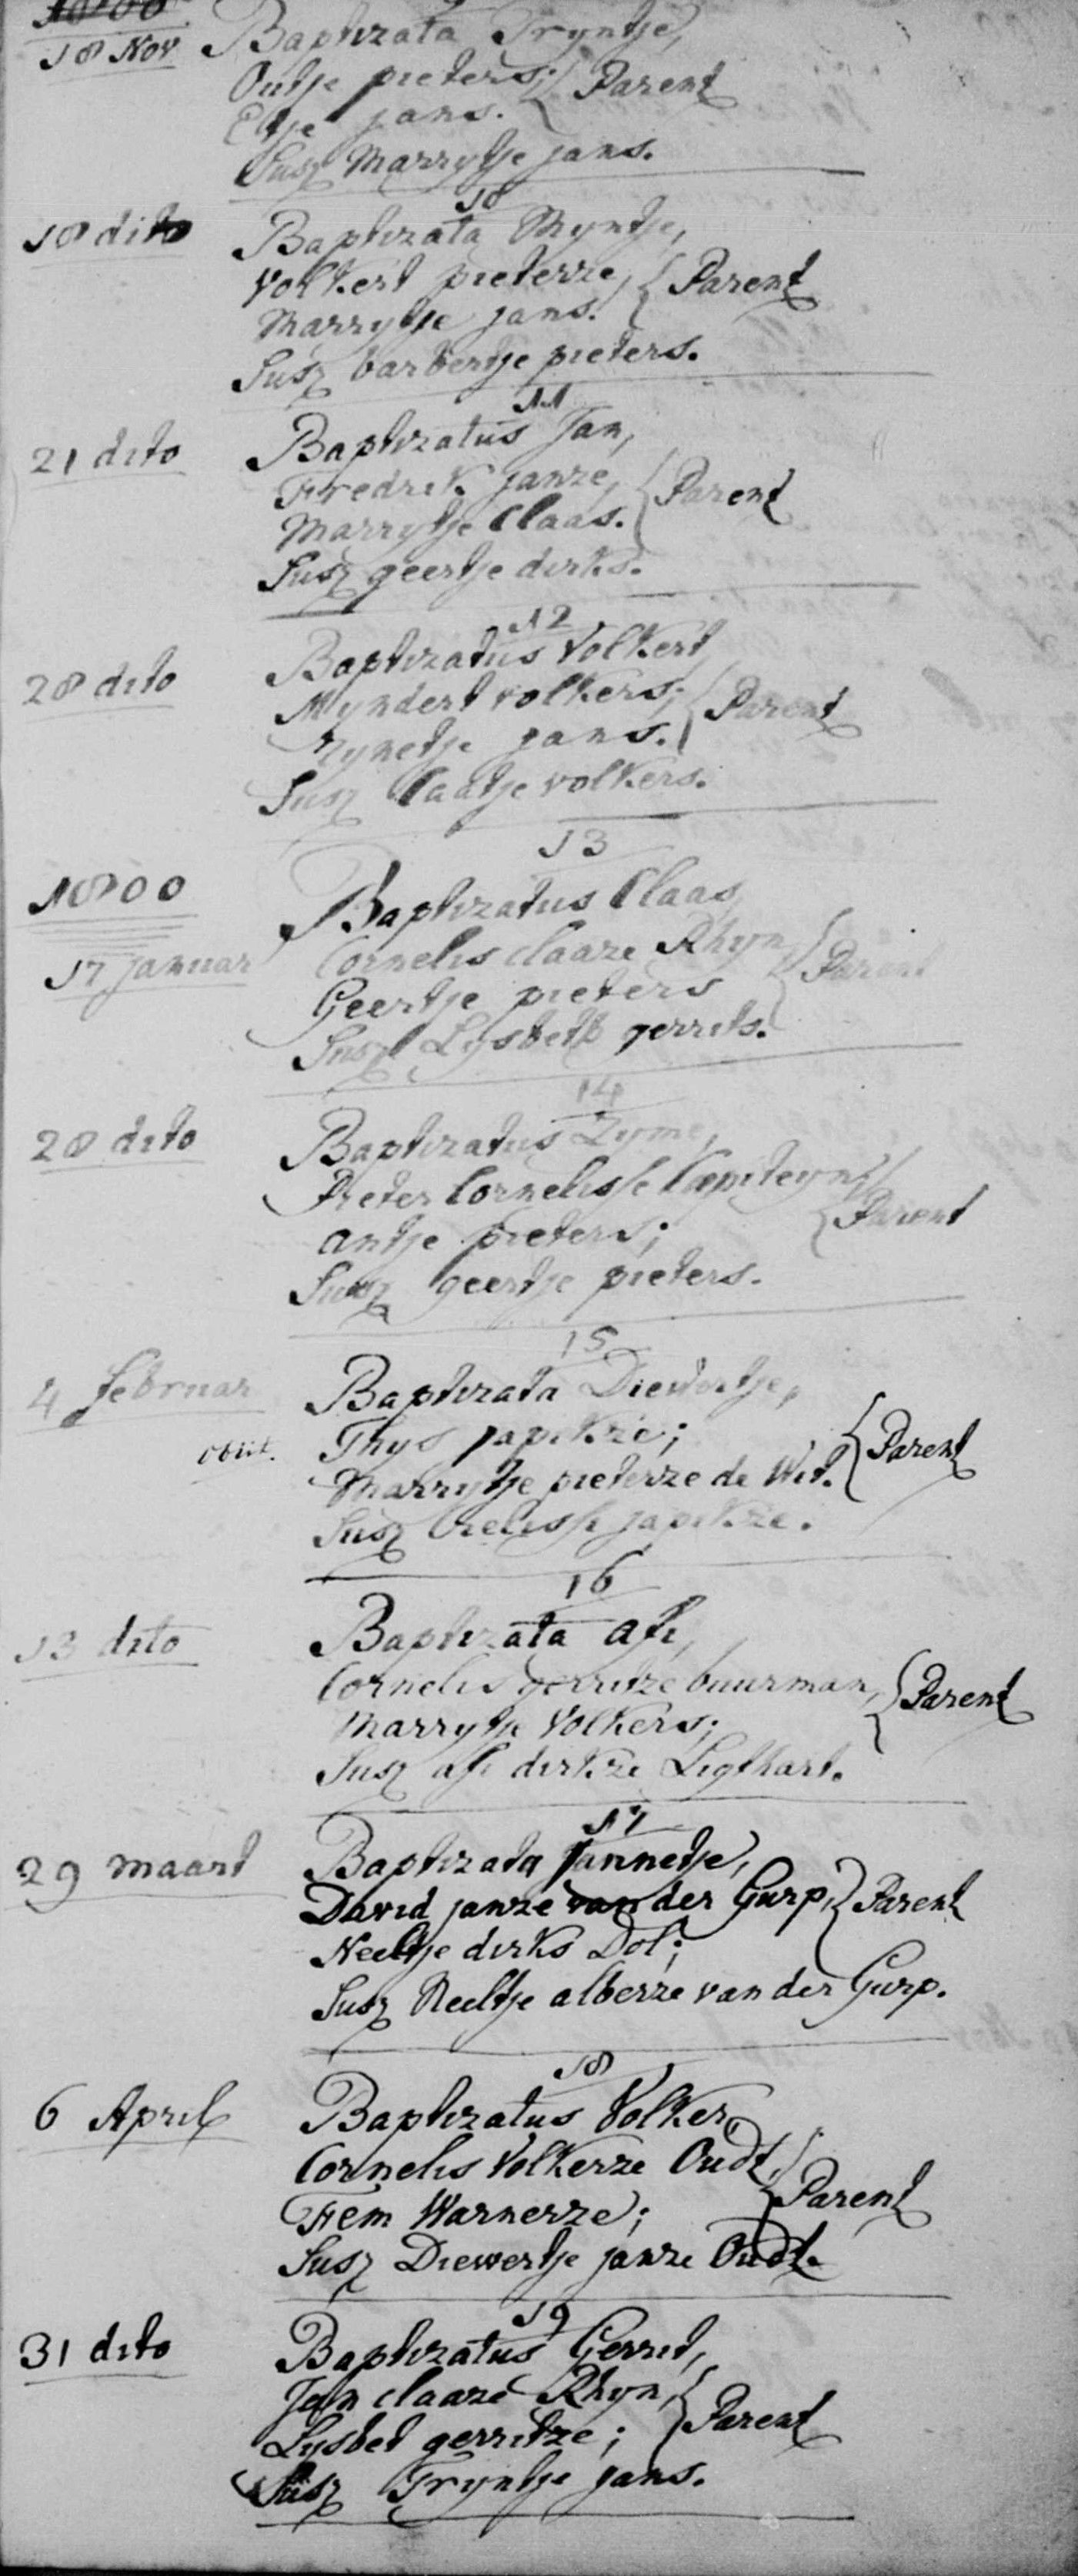 1800
18 Nov Baptizata Tryntje,
Outje pieters; Parent
Eltje jans.
Susz Marrytje jans.
10
18 dito Baptizata Thyntje,
Volkert pieterze, Parent
Marrytje jans.
Susz barbertje pieters.
11
21 dito Baptizatus Jan,
Fredrik janze, Parent
Marrytje Claas.
Susz geertje dirks.
12
28 dito Baptizatus Volkert
Myndert volkers; Parent
jans.
Susz Caatje volkers.
13
1800
17 januar Baptizatus Claas,
Cornelis Claaze Rhyn, Parent
Geertje pieters
Susz Lysbeth gerrits.
14
28 dito Baptizatus Zyme,
Pieter Cornelisse Capiteyn; Parent
antje pieters;
Susz geertje pieters.
15
4 februar Baptizata Diewertje,
obiit. Thys japikze; Parent
Marrytje pieterze de Wit.
Susz japikze.
16
13 dito Baptizata afi,
Cornelis gerritze buurman, Parent
Marrytje Volkers;
Susz afi dirkze Ligthart.
17
29 maart Baptizata Jannetje,
David janze van der Gurp, Parent
Neeltje dirks Dol;
Susz Neeltje alberze van der Gurp.
18
6 April Baptizatus Volker,
Cornelis Volkerze Oudt, Parent
Fem Warnerze;
Susz Diewertje janze Oudt.
19
31 dito Baptizatus Gerrit,
Jan Claaze Rhyn, Parent
Lysbet gerritze;
Susz Tryntje jans.